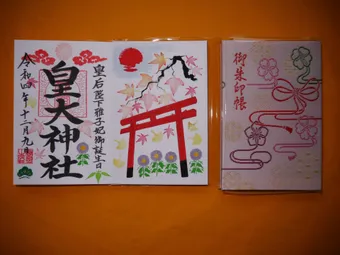 皇后陛下雅子妃御誕生日
皇大神社
令和四年十二月九日
御朱印帳